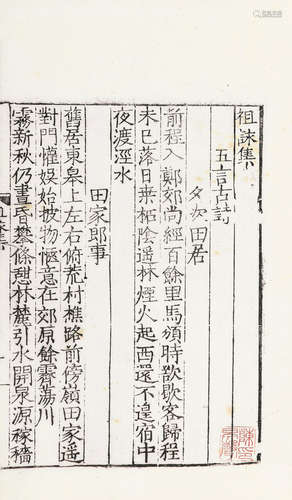 祖詠集
五言古詩
夕次田居
前程入鄭郊尚經百餘里馬煩時欲歇客歸程
未已落日桑柘陰遥林煙火起西還不遑宿中
夜渡涇水
田家郎事
舊居東皋上左右俯荒村樵路前傍嶺田家遥
對門懽娱始披拂愜意在郊原餘霽蕩川
霧新秋仍晝昏攀條憩林麓引水開泉源稼穡